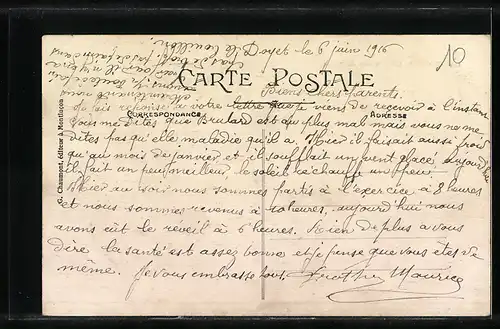 Doyet le 6 juin 1916
10
CARTE POSTALE
Biens chers parents.
Je fais réponse à votre lettre que je viens de recevoir à l'instant
CORRESPONDANCE
ADRESSE
Vous me dites que Brulard est au plus mal mais vous ne me
dites pas quelle maladie qu'il a. Hier il faisait aussi froid
qu'au mois de janvier et il soufflait un vent glacé aujourd'hui
il fait un peu meilleur, le soleil réchauffe un peu.
Hier au soir nous sommes partis à l'exercice à 8 heures
et nous sommes revenus à 10 heures, aujourd'hui nous
avons eût le reveil à 6 heures. Rien de plus a vous
dire la santé est assez bonne et je pense que vous êtes de
même. Je vous embrasse tous. Maurice
Chaumont, éditeur à Montluçon